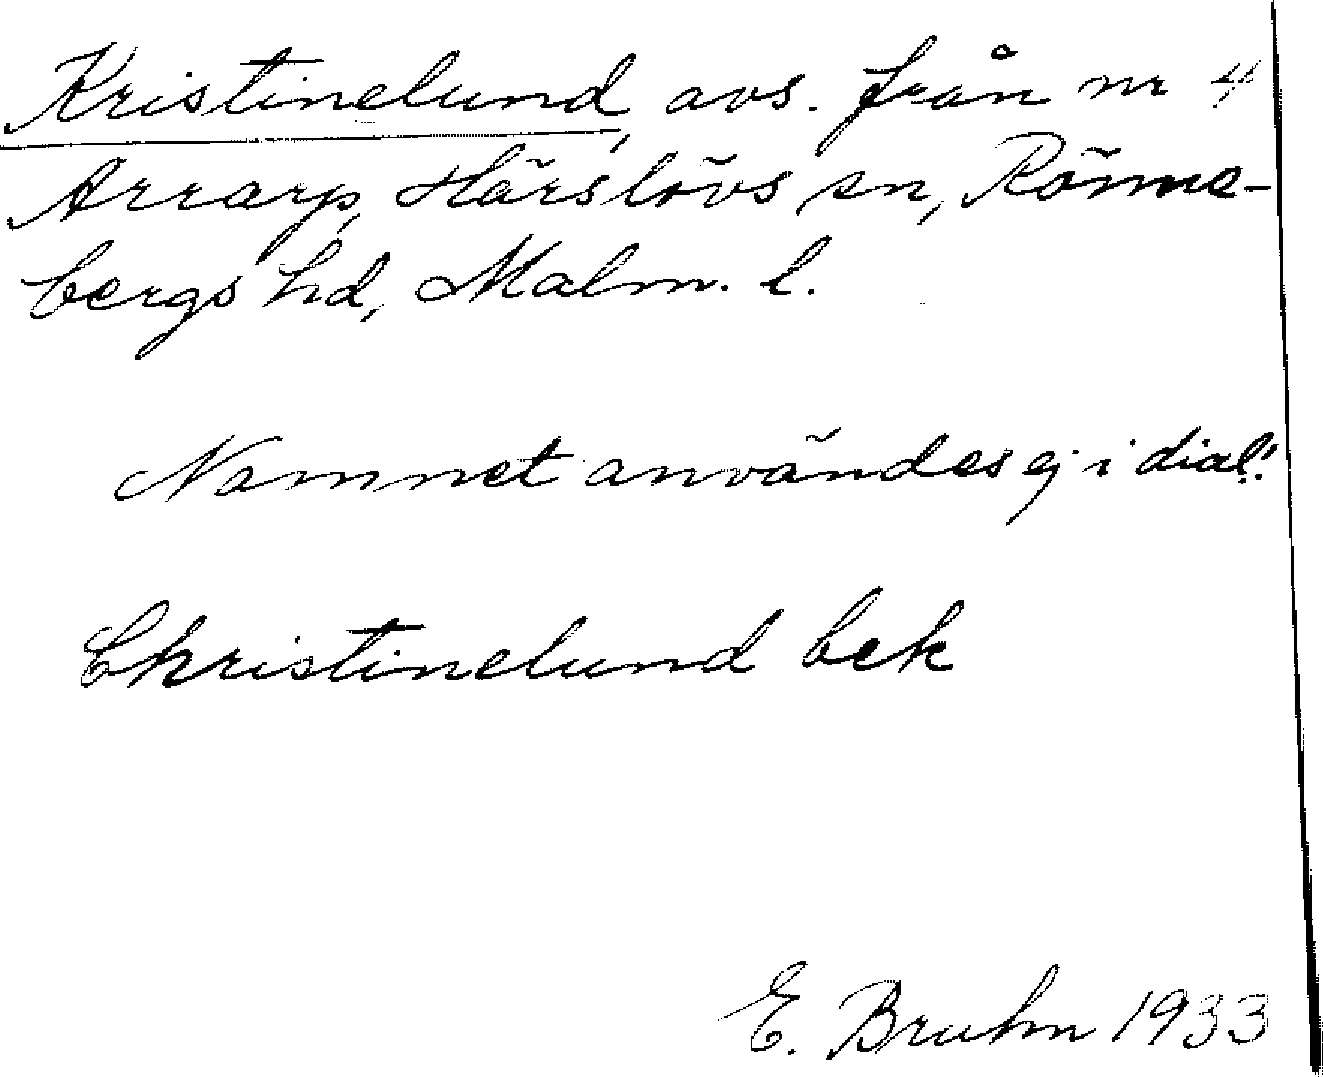 Kristinelund, avs. från nr 4
Arrarp, Härslövs sn, Rönne-
bergs hd, Malm. l.
Namnet användes ej i dial.!
Christinelund bek
E. Bruhn 1933